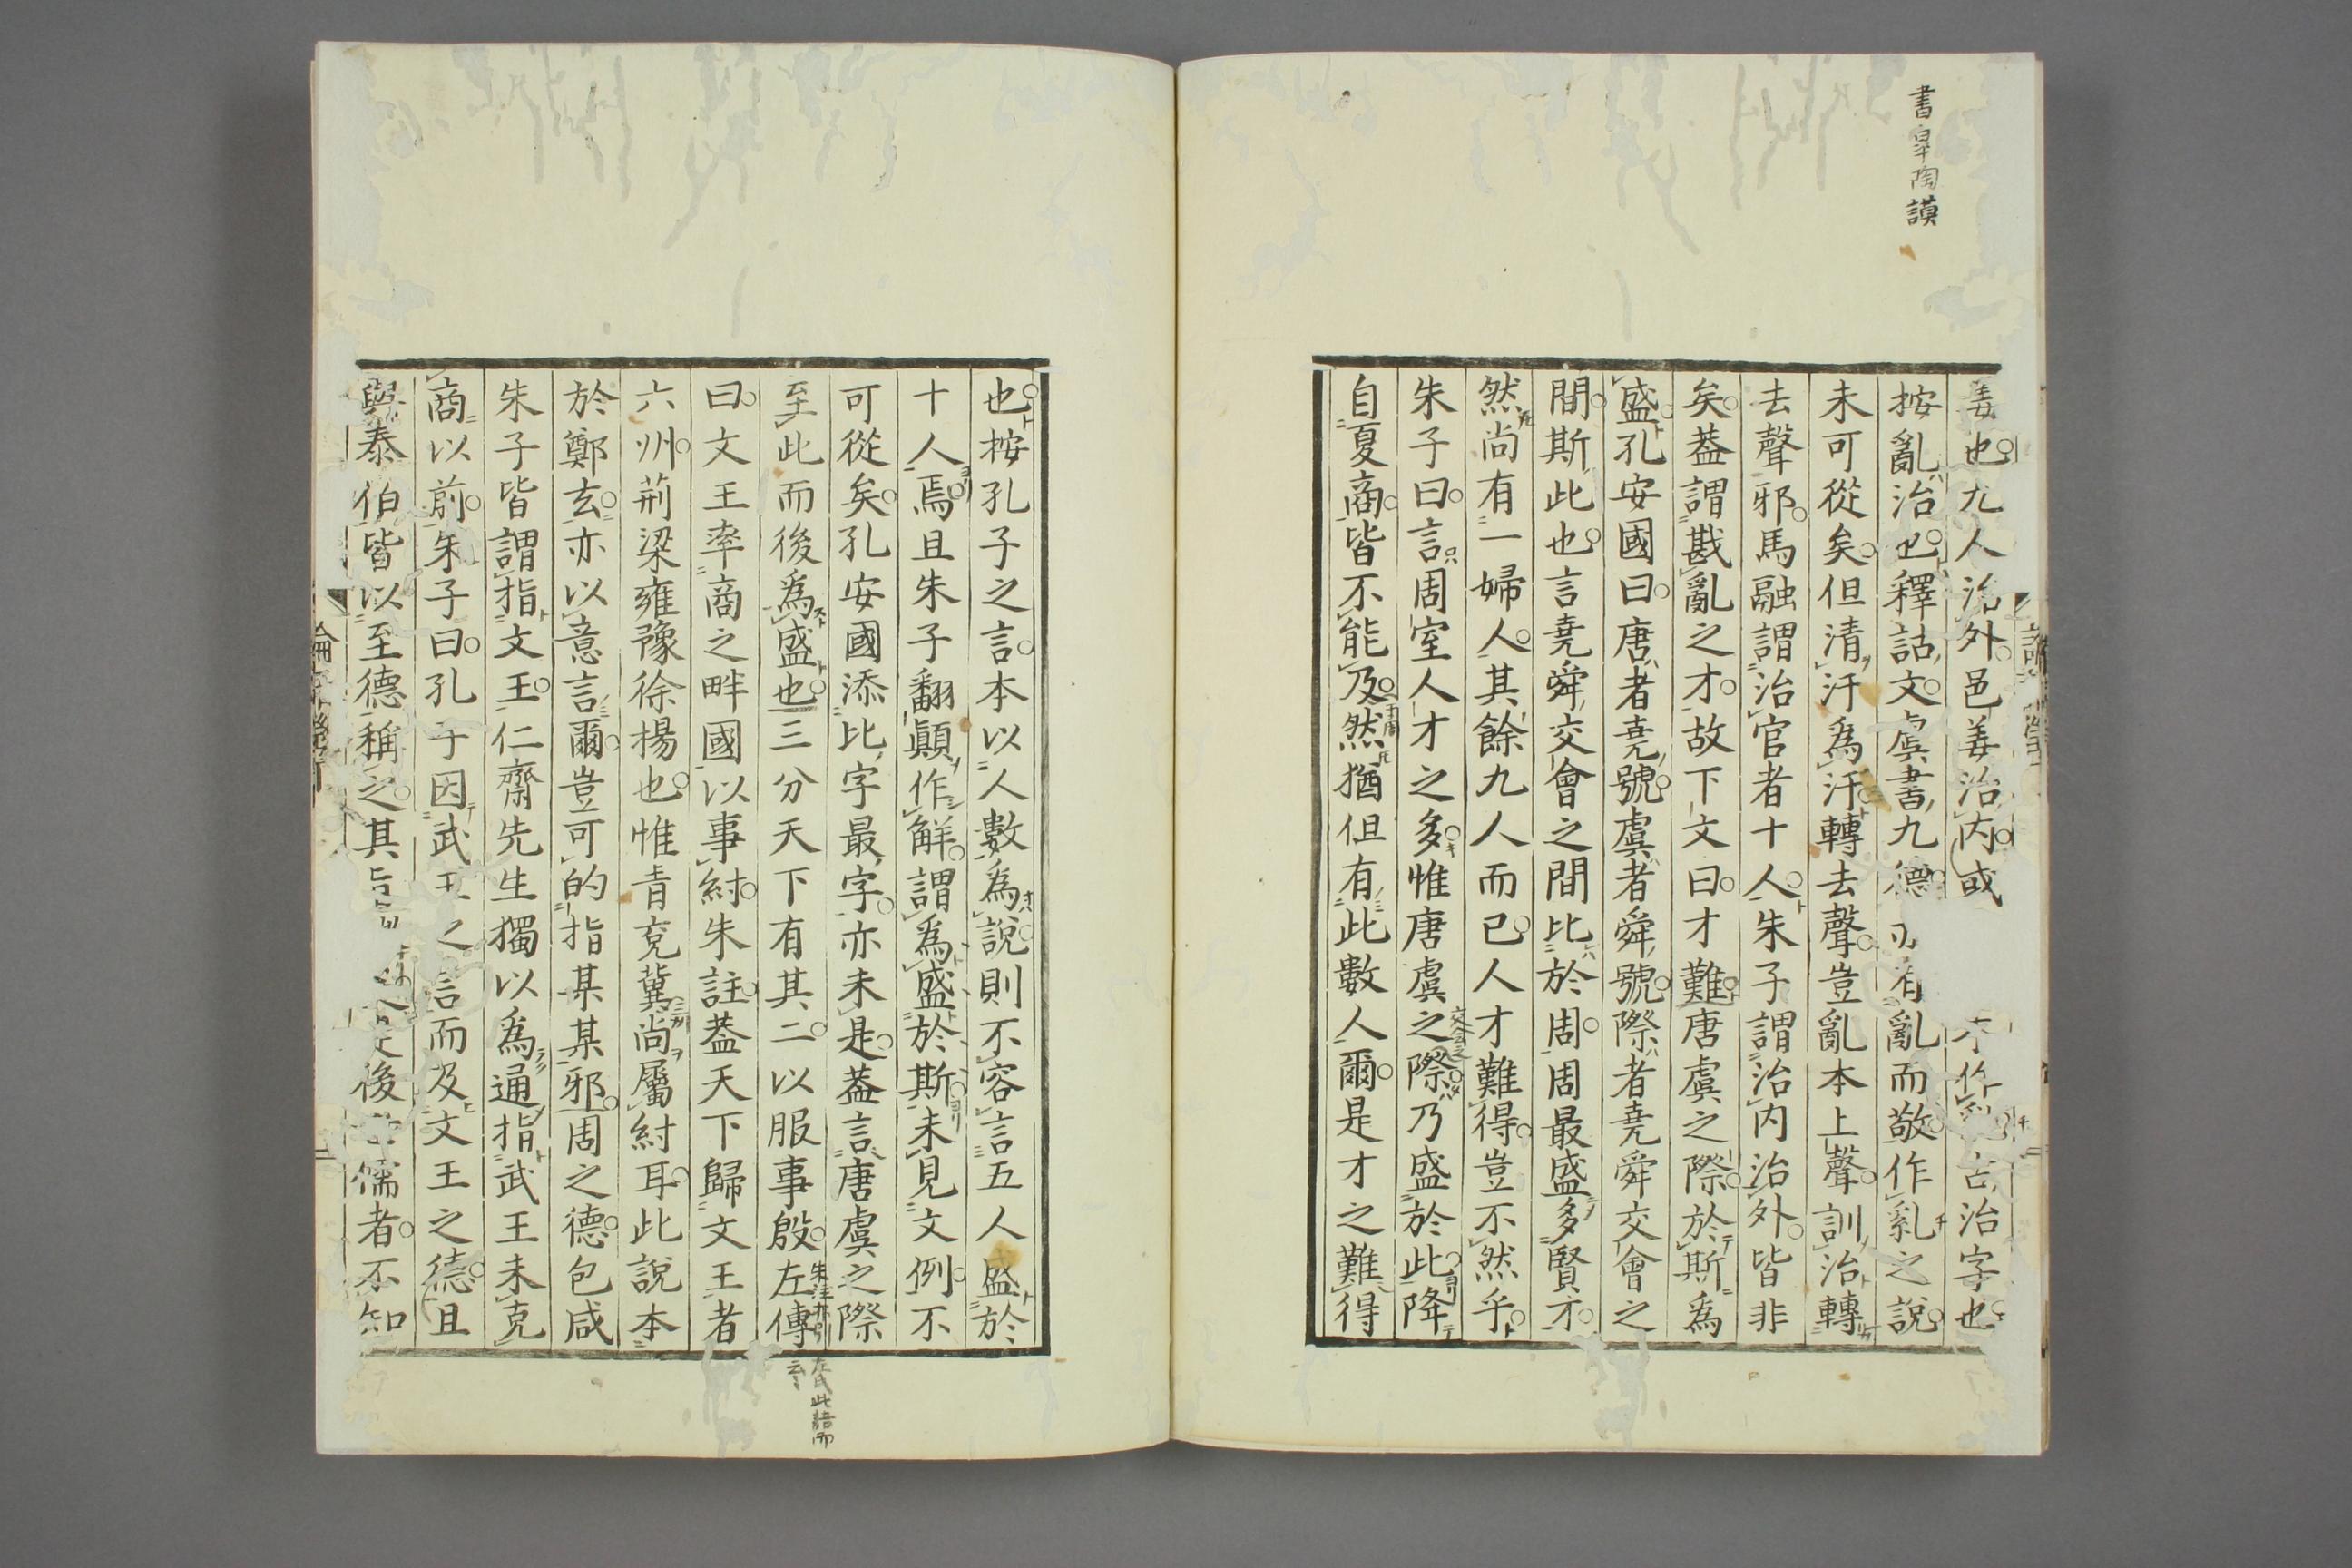 書皐陶謨
姜也九人治外邑姜治内或 不作 古治字也
按亂治也釋詁文虞書九德 有亂而敬作乿之說
未可從矣但清汙為汙轉去聲豈亂本上聲訓治轉
去聲邪馬融謂治官者十人朱子謂治内治外皆非
矣蓋謂戡亂之才故下文曰才難唐虞之際於斯為
盛孔安國曰唐者堯號虞者舜號際者堯舜交會之
間斯此也言堯舜交會之間比於周周最盛多賢才
然尚有一婦人其餘九人而已人才難得豈不然乎
朱子曰言周室人才之多惟唐虞之際乃盛於此降
交会之
自夏商皆不能及然猶但有此數人爾是才之難得
也按孔子之言本以人數為說則不容言五人盛於
十人焉且朱子翻顛作觧謂為盛於斯未見文例不
可從矣孔安國添比字最字亦未是蓋言唐虞之際
至此而後為盛也三分天下有其二以服事殷左傳
朱注亦引左氏此語而云々
曰文王率商之畔國以事紂朱註蓋天下歸文王者
六州荊梁雍豫徐揚也惟青兗冀尚屬紂耳此說本
於鄭玄亦以意言爾豈可的指某某邪周之德包咸
朱子皆謂指文王仁齋先生獨以為通指武王未克
商以前朱子曰孔子因武王之言而及文王之德且
與泰伯皆以至德稱之其旨 後 儒者不知